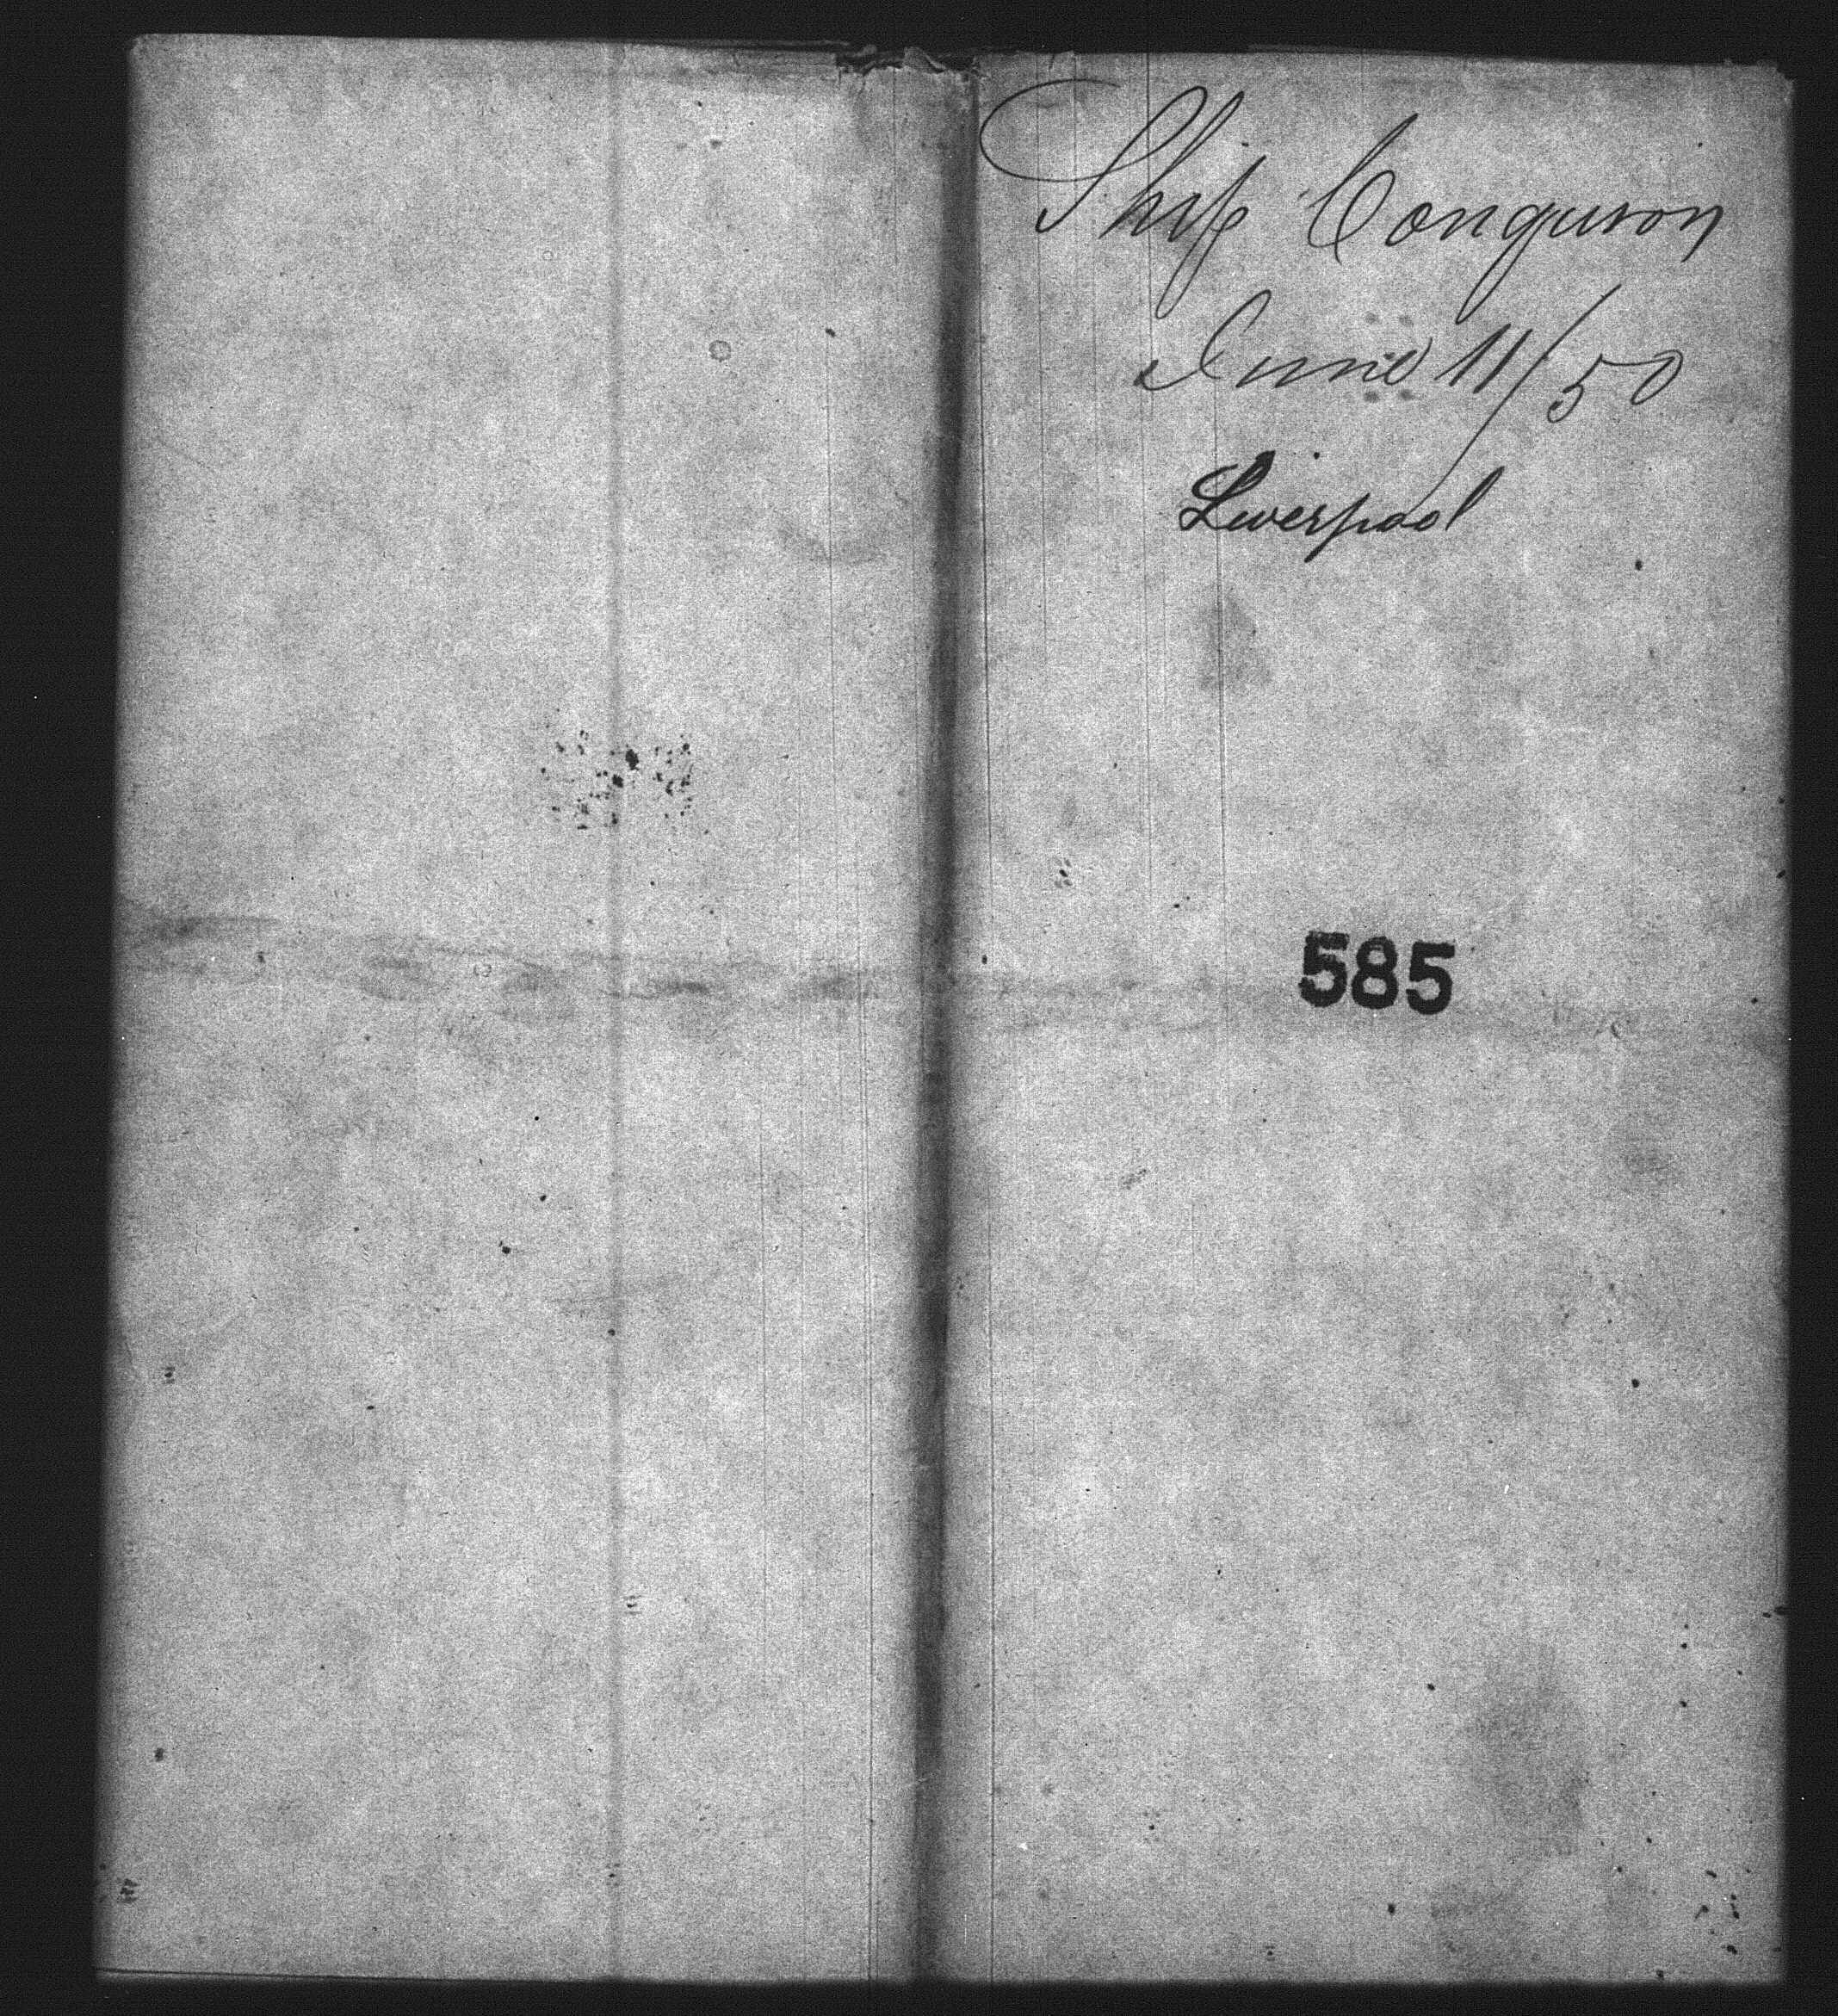 Ship Conqueror
June 11/50
Liverpool
585